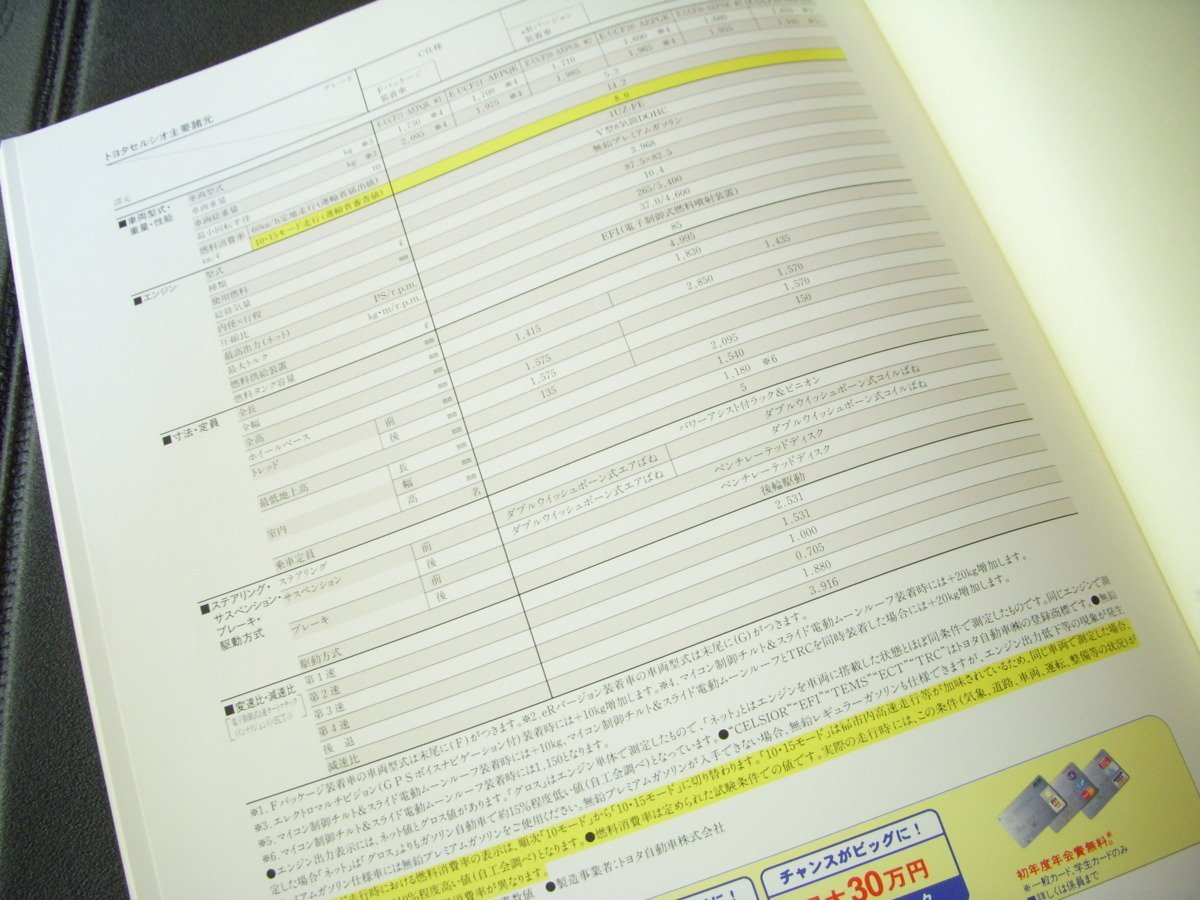 トヨタセルシオ主要諸元
グレード
C仕様
Fパッケージ装着車
eRバージョン装着車
諸元
■車両型式・重量・性能
車両型式
E-UCF21-AEPQK
E-UCF20-AEPGK
車両重量 kg ※2 1,730 ※4 1,700 ※4 1,710 1,690 ※4 1,680
車両総重量 kg ※3 2,005 ※4 1,975 ※4 1,985 1,965 ※4 1,955
最小回転半径 m 5.3
燃料消費率 km/ℓ
60km/h定地走行(運輸省届出値) 14.2
10・15モード走行(運輸省審査値) 8.0
■エンジン
型式 1UZ-FE
種類 V型8気筒DOHC
使用燃料 無鉛プレミアムガソリン
総排気量 ℓ 3.968
内径×行程 mm 87.5×82.5
圧縮比 10.4
最高出力(ネット) PS/r.p.m. 265/5,400
最大トルク kg・m/r.p.m. 37.0/4,600
燃料供給装置 EFI(電子制御式燃料噴射装置)
燃料タンク容量 ℓ 85
■寸法・定員
全長 mm 4,995
全幅 mm 1,830
全高 mm 1,415 1,435
ホイールベース mm 2,850
トレッド 前 mm 1,575 1,570
後 mm 1,575 1,570
最低地上高 mm 135 150
室内 長 mm 2,095
幅 mm 1,540
高 mm 1,180 ※6
乗車定員 名 5
■ステアリング・サスペンション・ブレーキ・駆動方式
ステアリング パワーアシスト付ラック&ピニオン
サスペンション 前 ダブルウイッシュボーン式エアばね ダブルウイッシュボーン式コイルばね
後 ダブルウイッシュボーン式エアばね ダブルウイッシュボーン式コイルばね
ブレーキ 前 ベンチレーテッドディスク
後 ベンチレーテッドディスク
駆動方式 後輪駆動
■変速比・減速比
第1速 2.531
第2速 1.531
第3速 1.000
第4速 0.705
後退 1.880
減速比 3.916
※1. Fパッケージ装着車の車両型式は末尾に(F)がつきます。※2. eRバージョン装着車の車両型式は末尾に(G)がつきます。
※3. エレクトロマルチビジョン(GPSボイスナビゲーション付)装着時には+10kg増加します。※4. マイコン制御チルト&スライド電動ムーンルーフ装着時には+20kg増加します。
※5. マイコン制御チルト&スライド電動ムーンルーフ装着時には+10kg、マイコン制御チルト&スライド電動ムーンルーフとTRCを同時装着した場合には+20kg増加します。
※6. マイコン制御チルト&スライド電動ムーンルーフ装着時には1,150となります。
●エンジン出力表示には、ネット値とグロス値があります。「グロス」はエンジン単体で測定したもので、「ネット」とはエンジンを車両に搭載した状態とほぼ同条件で測定したものです。同じエンジンで測
定した場合「ネット」は「グロス」よりもガソリン自動車で約15%程度低い値(自工会調べ)となっています。●“CELSIOR”“EFI”“TEMS”“ECT”“TRC”はトヨタ自動車㈱の登録商標です。●無鉛
プレミアムガソリン仕様車には無鉛プレミアムガソリンをご使用ください。無鉛プレミアムガソリンが入手できない場合、無鉛レギュラーガソリンも使用できますが、エンジン出力低下等の現象が発生
走行時における燃料消費率の表示は、順次「10モード」から「10・15モード」に切り替わります。「10・15モード」は都市内高速走行等が加味されているため、同じ車両で測定した場合、
10%程度高い値(自工会調べ)となります。●燃料消費率は定められた試験条件での値です。実際の走行時には、この条件(気象、道路、車両、運転、整備等の状況)が
費率が異なります。
●製造事業者:トヨタ自動車株式会社
チャンスがビッグに!
30万円
初年度年会費無料。※
※一般カード、学生カードのみ
■詳しくは係員まで